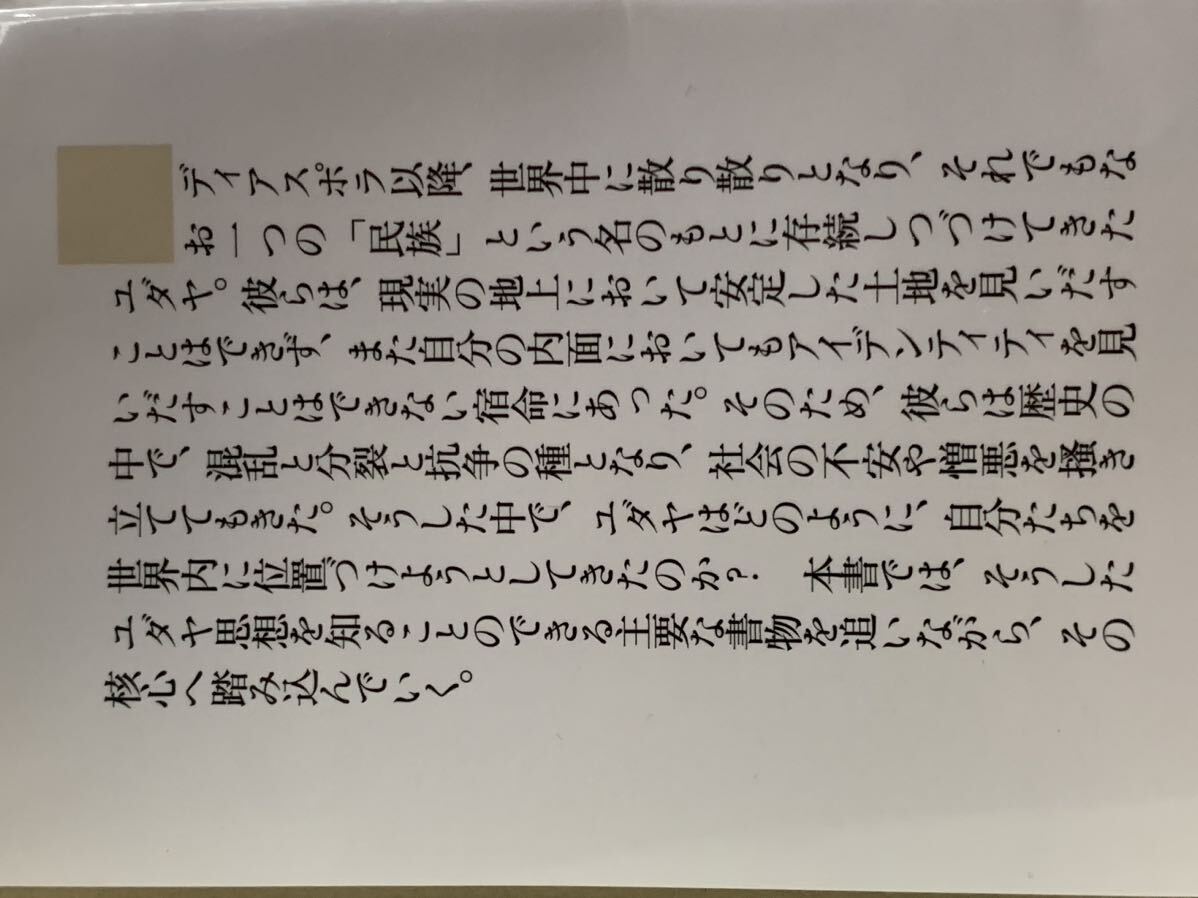 ディアスポラ以降、世界中に散り散りとなり、それでもな
お一つの「民族」という名のもとに存続しつづけてきた
ユダヤ。彼らは、現実の地上において安定した土地を見いだす
ことはできず、また自分の内面においてもアイデンティティを見
いだすことはできない宿命にあった。そのため、彼らは歴史の
中で、混乱と分裂と抗争の種となり、社会の不安や憎悪を掻き
立ててもきた。そうした中で、ユダヤはどのように、自分たちを
世界内に位置づけようとしてきたのか? 本書では、そうした
ユダヤ思想を知ることのできる主要な書物を追いながら、その
核心へ踏み込んでいく。